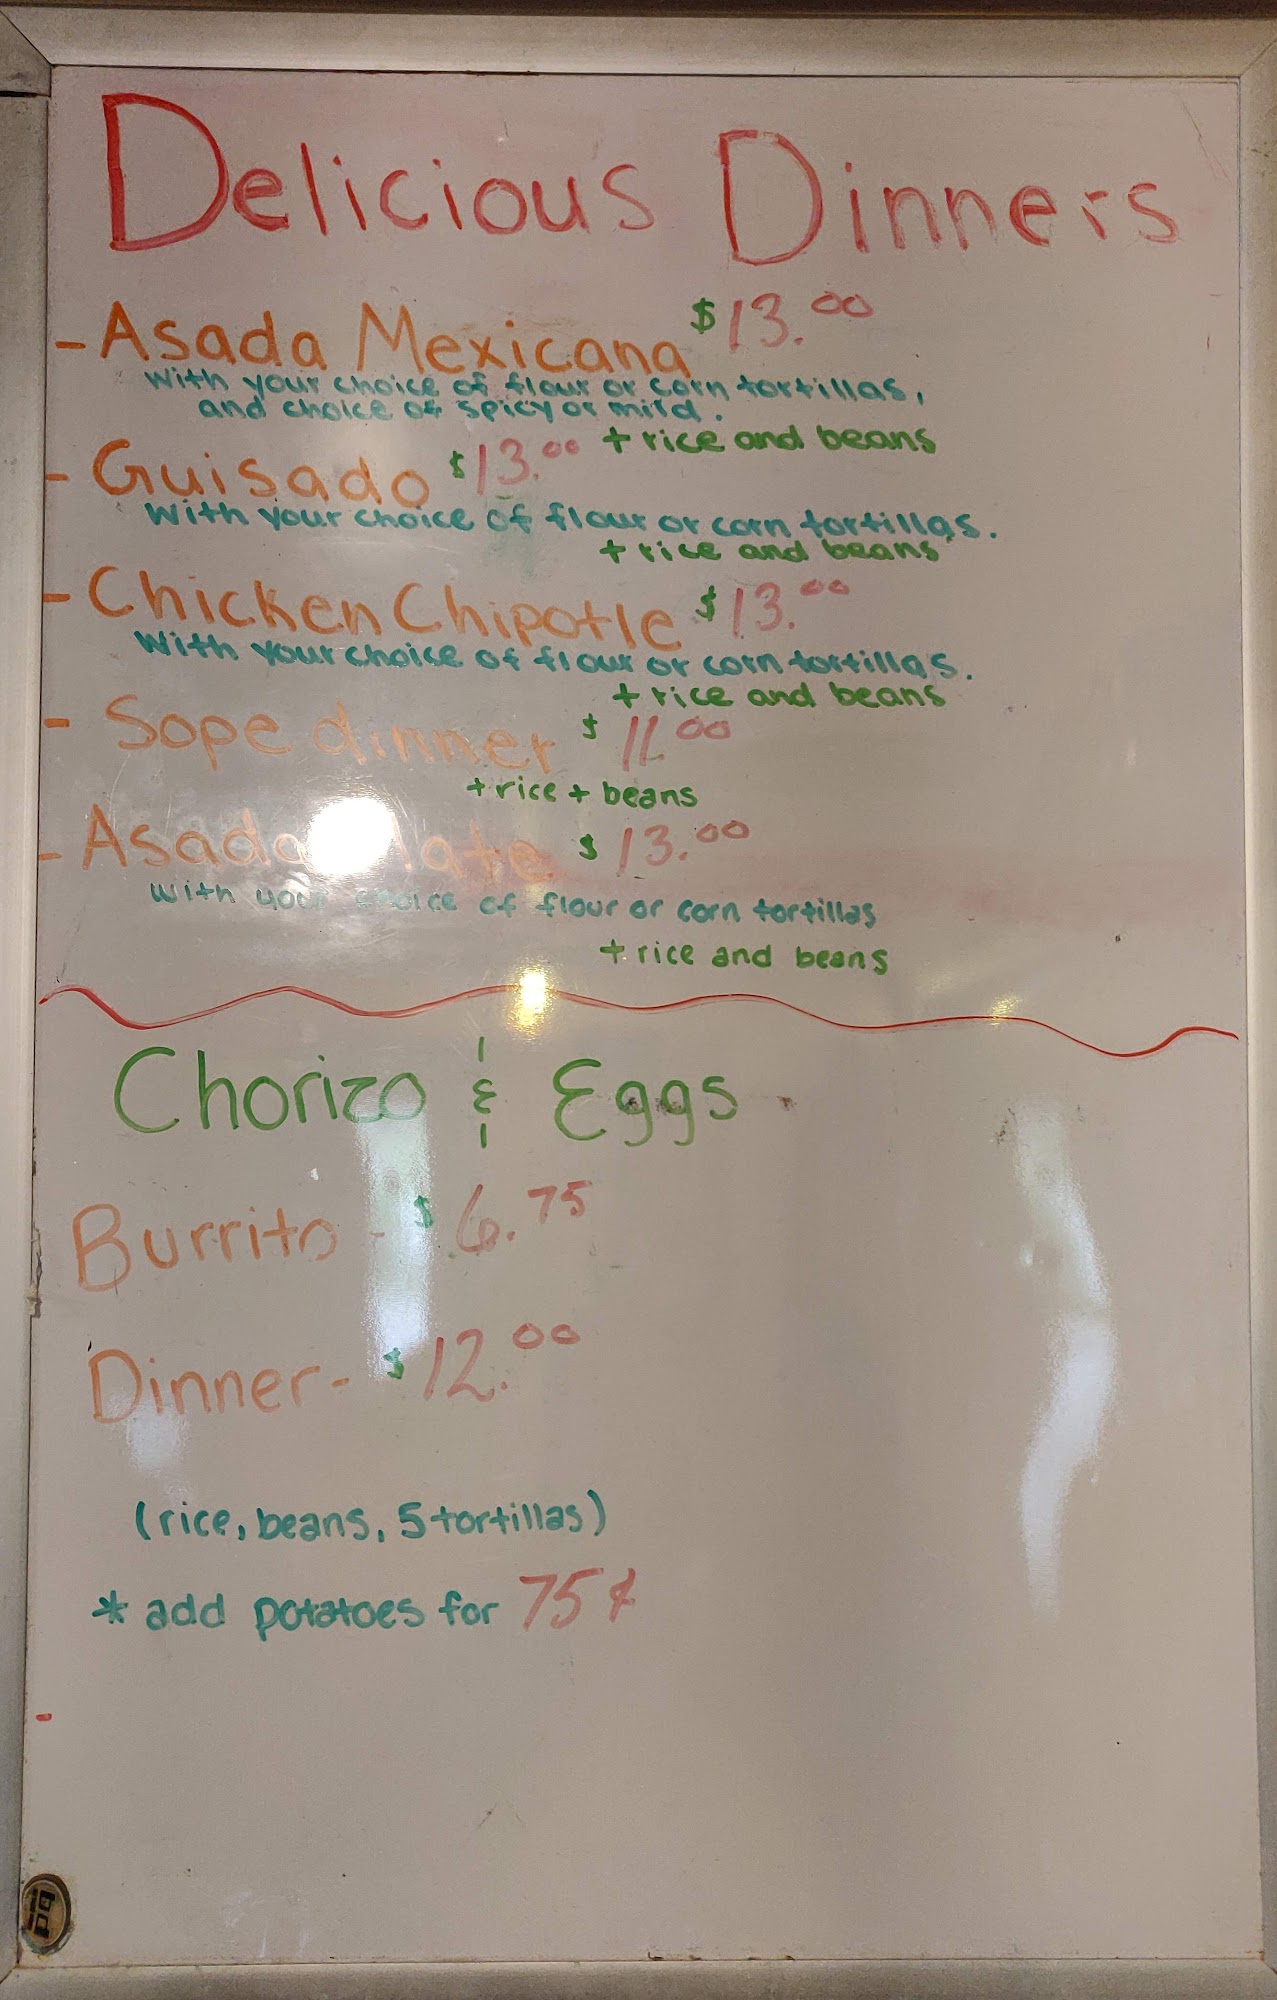 Delicious Dinners
- Asada Mexicana $13.00
with your choice of flour or corn tortillas,
and choice of spicy or mild.
+ rice and beans
- Guisado $13.00
with your choice of flour or corn tortillas.
+ rice and beans
- Chicken Chipotle $13.00
with your choice of flour or corn tortillas.
+ rice and beans
- Sope dinner $11.00
+ rice + beans
- Asada $13.00
with your choice of flour or corn tortillas
+ rice and beans
Chorizo & Eggs
Burrito - $6.75
Dinner - $12.00
(rice, beans, 5 tortillas)
* add potatoes for 75¢
-